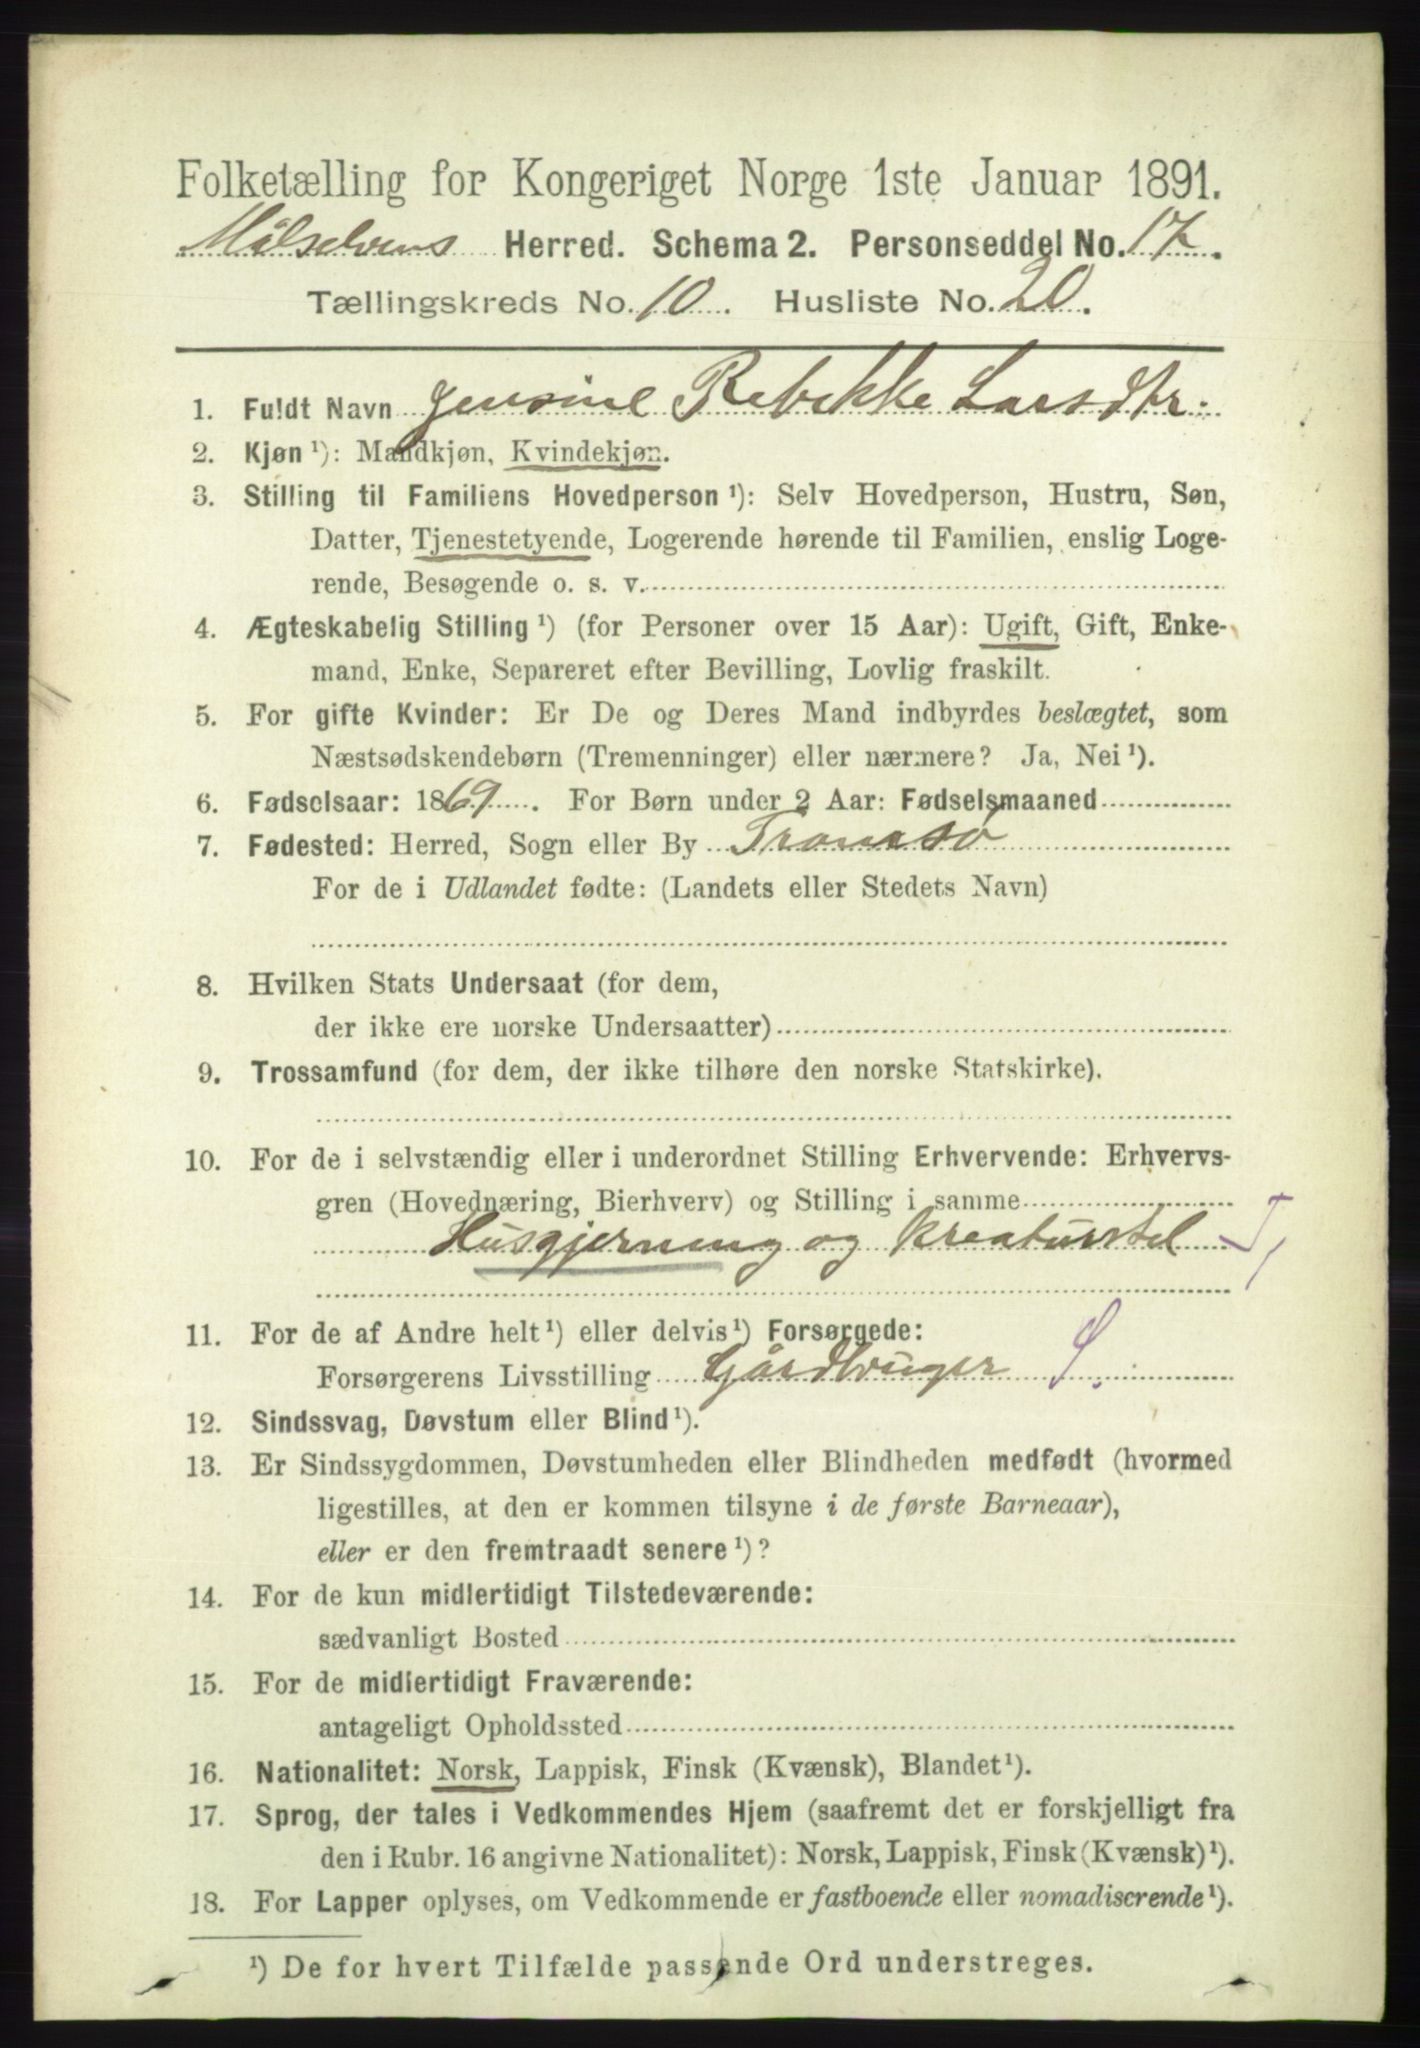 Folketælling for Kongeriget Norge 1ste Januar 1891.
Målselvens Herred. Schema 2. Personseddel No. 17.
Tællingskreds No. 10. Husliste No. 20.
1. Fuldt Navn Jensine Rebekke Larsdtr.
2. Kjøn ¹): Mandkjøn, Kvindekjøn.
3. Stilling til Familiens Hovedperson ¹): Selv Hovedperson, Hustru, Søn,
Datter, Tjenestetyende, Logerende hørende til Familien, enslig Loge-
rende, Besøgende o. s. v.
4. Ægteskabelig Stilling ¹) (for Personer over 15 Aar): Ugift, Gift, Enke-
mand, Enke, Separeret efter Bevilling, Lovlig fraskilt.
5. For gifte Kvinder: Er De og Deres Mand indbyrdes beslægtet, som
Næstsødskendebørn (Tremenninger) eller nærmere? Ja, Nei ¹).
6. Fødselsaar: 1869. For Børn under 2 Aar: Fødselsmaaned
7. Fødested: Herred, Sogn eller By Tromsø
For de i Udlandet fødte: (Landets eller Stedets Navn)
8. Hvilken Stats Undersaat (for dem,
der ikke ere norske Undersaatter)
9. Trossamfund (for dem, der ikke tilhøre den norske Statskirke).
10. For de i selvstændig eller i underordnet Stilling Erhvervende: Erhvervs-
gren (Hovednæring, Bierhverv) og Stilling i samme
Husgjerning og kreaturstel T,
11. For de af Andre helt ¹) eller delvis ¹) Forsørgede:
Forsørgerens Livsstilling Gårdbruger S.
12. Sindssvag, Døvstum eller Blind ¹).
13. Er Sindssygdommen, Døvstumheden eller Blindheden medfødt (hvormed
ligestilles, at den er kommen tilsyne i de første Barneaar),
eller er den fremtraadt senere ¹)?
14. For de kun midlertidigt Tilstedeværende:
sædvanligt Bosted
15. For de midlertidigt Fraværende:
antageligt Opholdssted
16. Nationalitet: Norsk, Lappisk, Finsk (Kvænsk), Blandet ¹).
17. Sprog, der tales i Vedkommendes Hjem (saafremt det er forskjelligt fra
den i Rubr. 16 angivne Nationalitet): Norsk, Lappisk, Finsk (Kvænsk) ¹).
18. For Lapper oplyses, om Vedkommende er fastboende eller nomadiserende ¹).
¹) De for hvert Tilfælde passende Ord understreges.